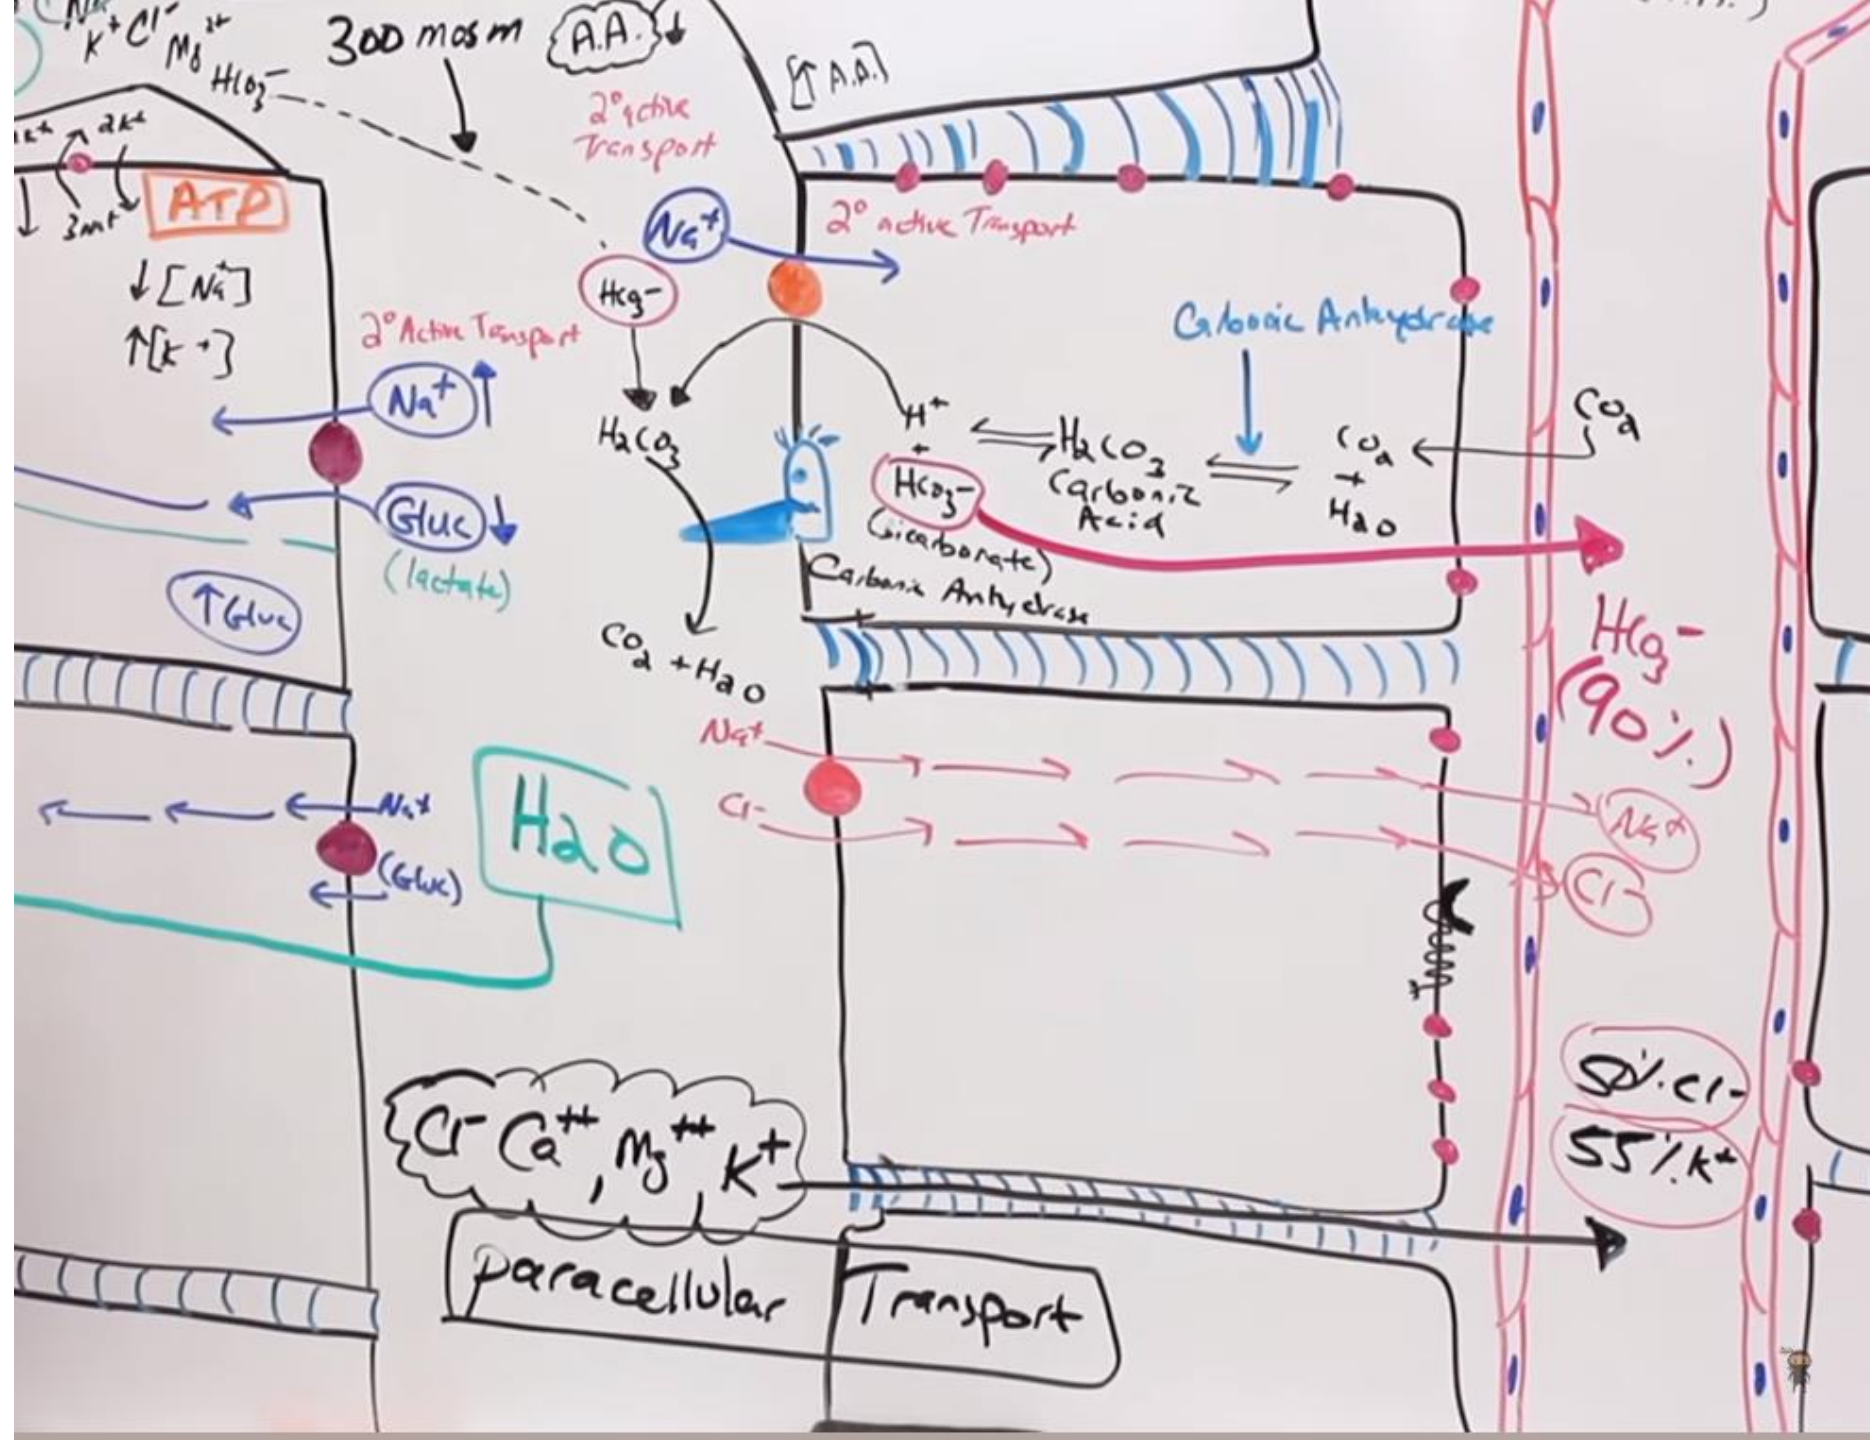 K⁺ Cl⁻
Mg²⁺
HCO₃⁻
300 mosm
A.A. ↓
[↑ A.A.]
2° active
Transport
2K⁺
3Na⁺
ATP
↓ [Na⁺]
↑ [K⁺]
Na⁺
2° active Transport
HCO₃⁻
2° Active Transport
Na⁺ ↑
Gluc ↓
(lactate)
↑Gluc
Carbonic Anhydrase
H₂CO₃
H⁺
+
HCO₃⁻
(bicarbonate)
H₂CO₃
Carbonic
Acid
CO₂
+
H₂O
CO₂
Carbonic Anhydrase
CO₂ + H₂O
HCO₃⁻
(90%)
Na⁺
Cl⁻
Na⁺
Cl⁻
Na⁺
(Gluc)
H₂O
50% Cl⁻
55% K⁺
Cl⁻ Ca⁺⁺, Mg⁺⁺ K⁺
Paracellular Transport